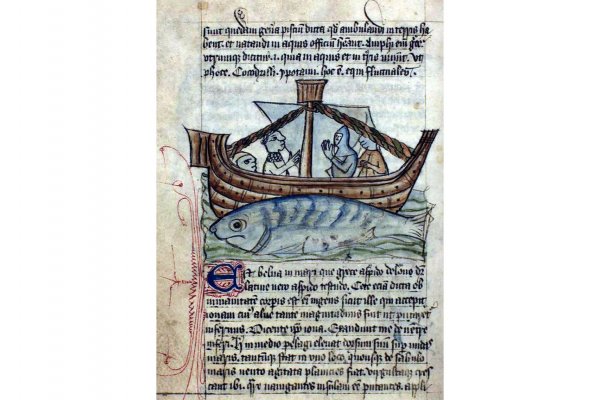 sunt quedam gena pisciū dicta qd ambulandi in terris ha
bent. et natandi in aquis officiū heant. Amphi em gre
utrumque dicitur .i. quia in aquis et in tris vivūt. Ut
phoce. Cocodrilli. ypotami. hoc ē. equi fluctuales.
Est belua in mari que grece aspido delone dr
latine vero aspido testudo. Cete eciā dicta ob
inmanitatem corpis est em ingens sicut ille qui accepit
ionam cui alvi tante magnitudinis fuit ut putaret
infernus. Dicente ipo iona. Exaudivit me de ventre
inferi. Hic in medio pelagi elevat dorsum suū sup undas
maris. tantūque stat in uno loco. quousque de sabulo
maris vento agitata planicies fiat. virgultaque cres
cant ibi. Qre navigantes insulam ēe putantes. appli